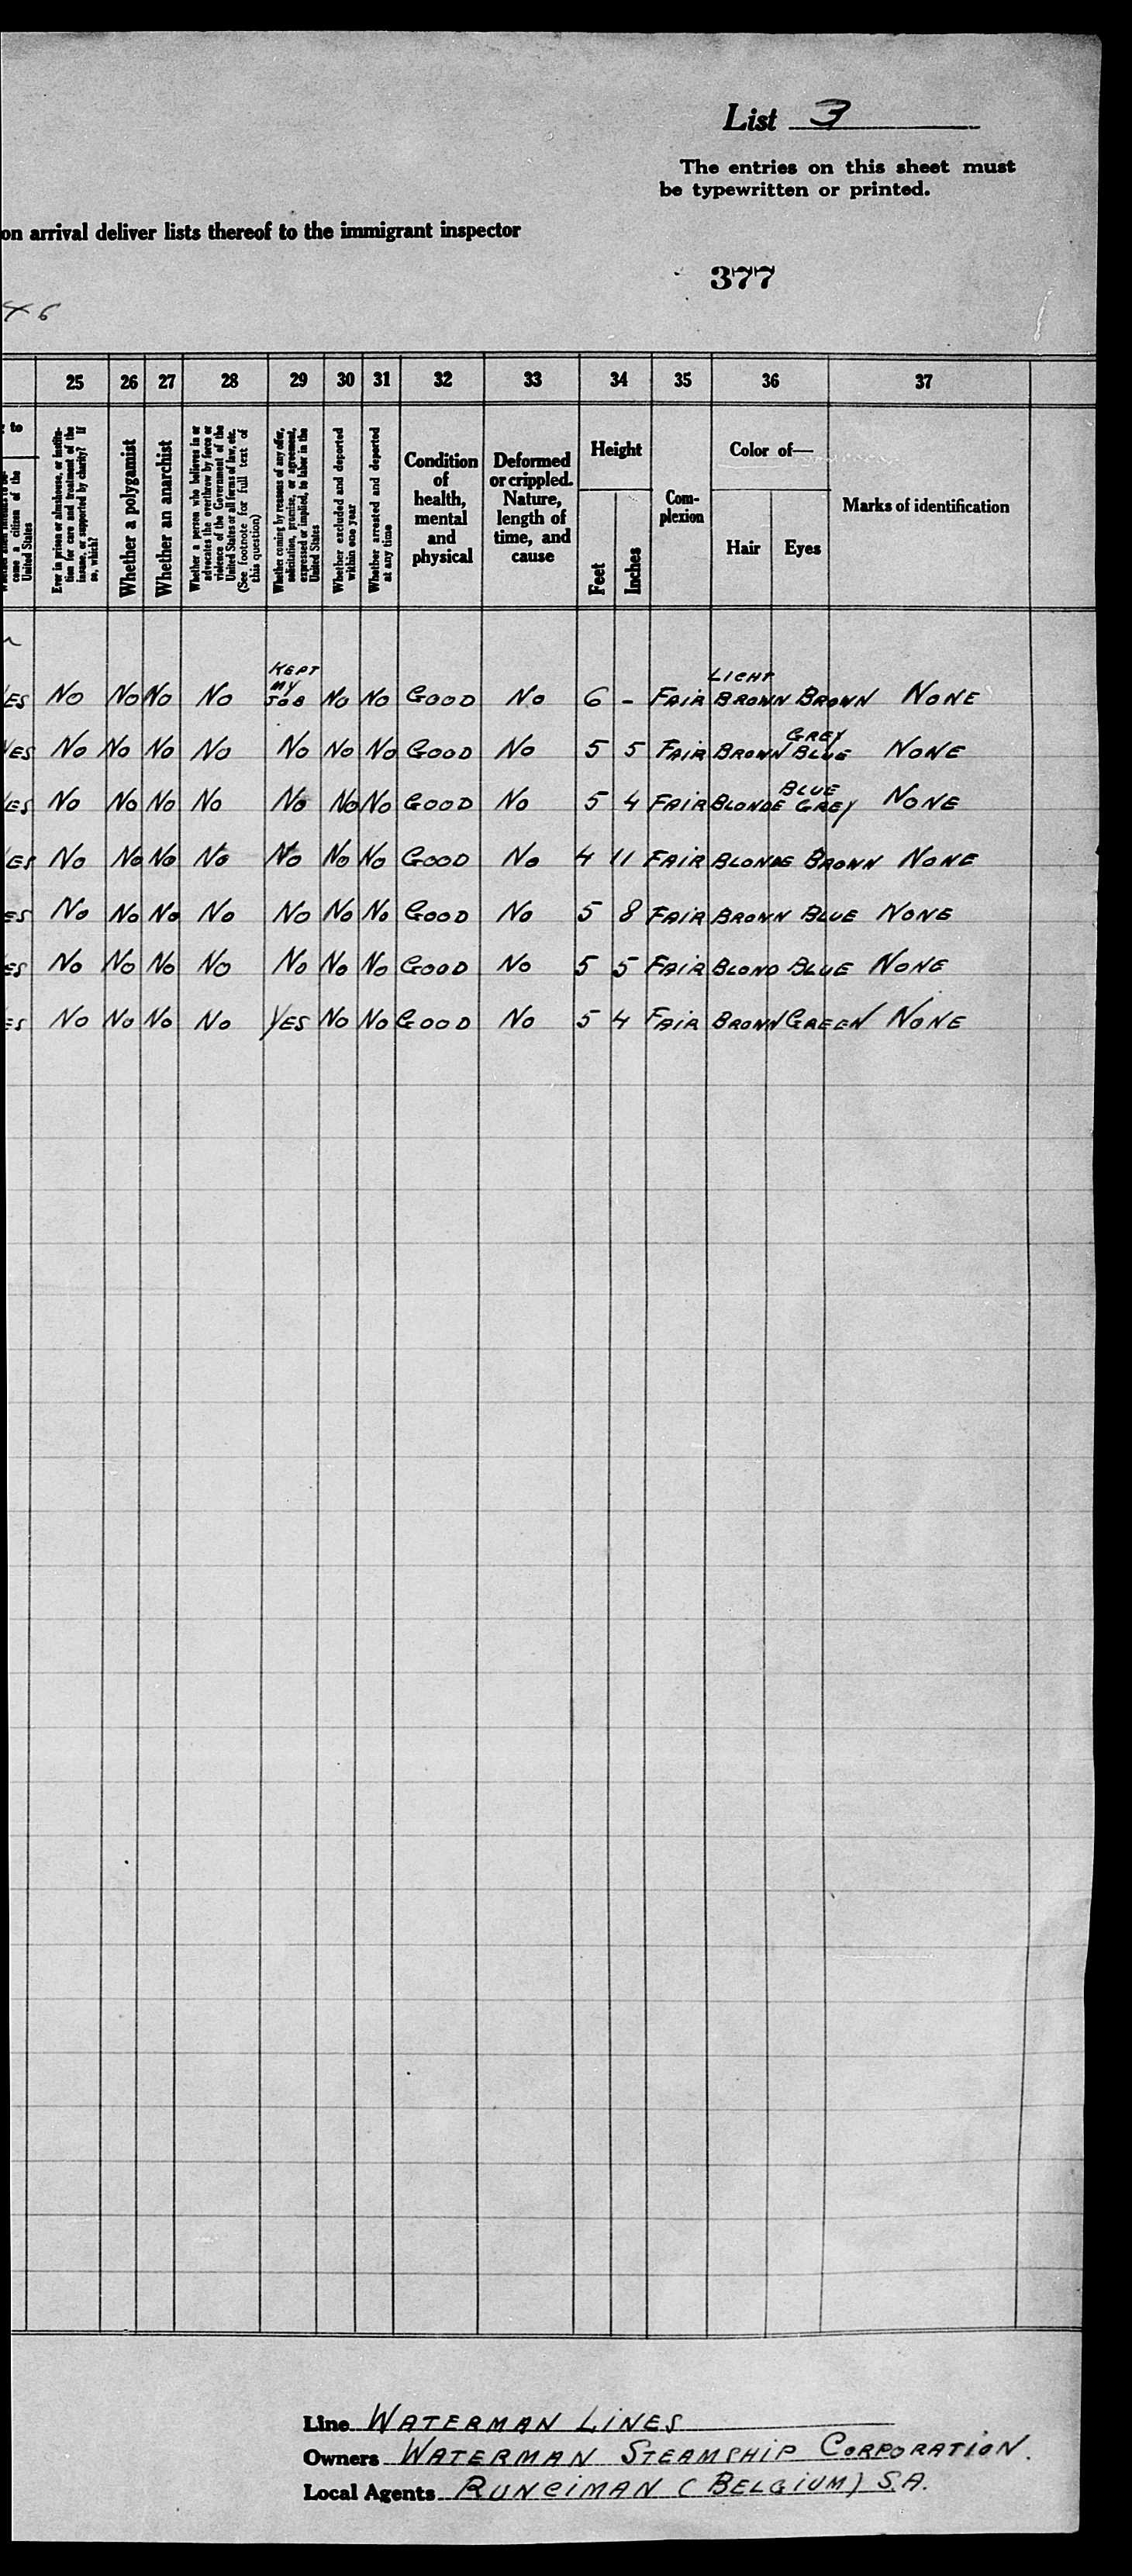 List 3
The entries on this sheet must
be typewritten or printed.
on arrival deliver lists thereof to the immigrant inspector
377
46
25 26 27 28 29 30 31 32 33 34 35 36 37
to
come a citizen of the
United States
Ever in prison or almshouse, or institu-
tion for care and treatment of the
insane, or supported by charity? If
so, which?
Whether a polygamist
Whether an anarchist
Whether a person who believes in or
advocates the overthrow by force or
violence of the Government of the
United States or all forms of law, etc.
(See footnote for full text of
this question)
Whether coming by reasons of any offer,
solicitation, promise, or agreement,
expressed or implied, to labor in the
United States
Whether excluded and deported
within one year
Whether arrested and deported
at any time
Condition
of
health,
mental
and
physical
Deformed
or crippled.
Nature,
length of
time, and
cause
Height
Feet
Inches
Com-
plexion
Color of—
Hair
Eyes
Marks of identification
KEPT
MY
JOB
LIGHT
ES NO NO NO NO NO NO GOOD NO 6 - FAIR BROWN BROWN NONE
GREY
YES NO NO NO NO NO NO NO GOOD NO 5 5 FAIR BROWN BLUE NONE
BLUE
ES NO NO NO NO NO NO NO GOOD NO 5 4 FAIR BLONDE GREY NONE
ES NO NO NO NO NO NO NO GOOD NO 4 11 FAIR BLONDE BROWN NONE
ES NO NO NO NO NO NO NO GOOD NO 5 8 FAIR BROWN BLUE NONE
ES NO NO NO NO NO NO NO GOOD NO 5 5 FAIR BLOND BLUE NONE
ES NO NO NO NO YES NO NO GOOD NO 5 4 FAIR BROWN GREEN NONE
Line WATERMAN LINES
Owners WATERMAN STEAMSHIP CORPORATION.
Local Agents RUNCIMAN (BELGIUM) S.A.